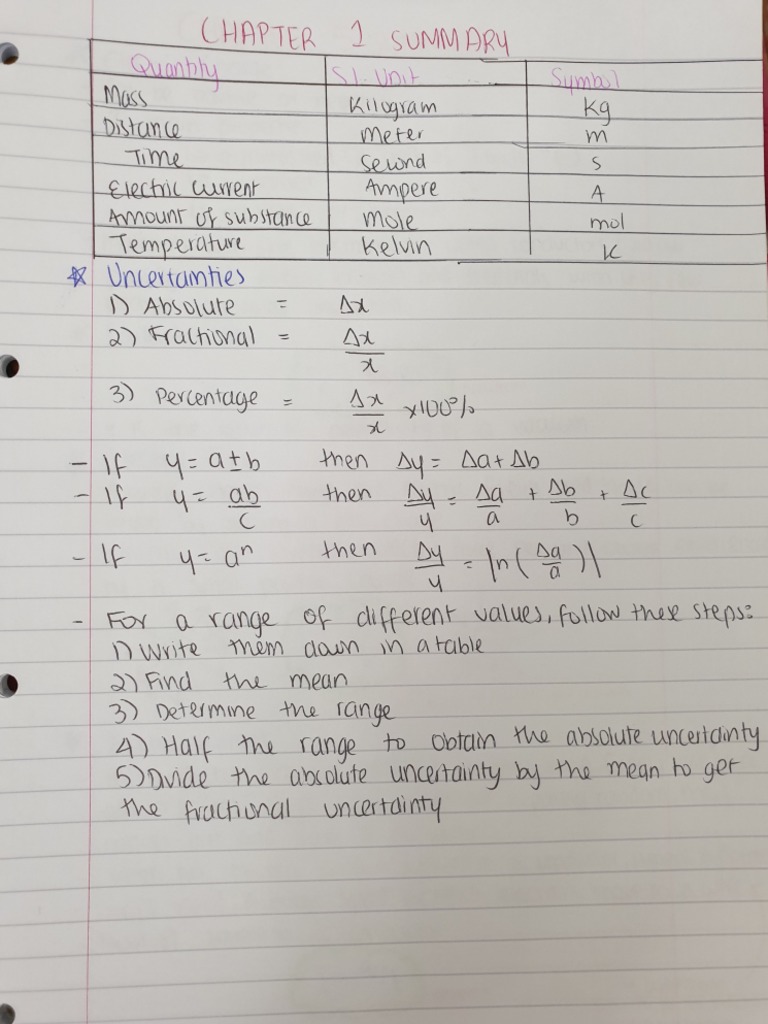 CHAPTER 1 SUMMARY
Quantity S.I. Unit Symbol
Mass Kilogram kg
Distance Meter m
Time Second s
Electric current Ampere A
Amount of substance Mole mol
Temperature Kelvin K
☆ Uncertainties
1) Absolute = Δx
2) Fractional = Δx/x
3) Percentage = Δx/x ×100%
- If y = a±b then Δy = Δa + Δb
- If y = ab/c then Δy/y = Δa/a + Δb/b + Δc/c
- If y = aⁿ then Δy/y = |n(Δa/a)|
- For a range of different values, follow these steps:
1) Write them down in a table
2) Find the mean
3) Determine the range
4) Half the range to obtain the absolute uncertainty
5) Divide the absolute uncertainty by the mean to get
the fractional uncertainty